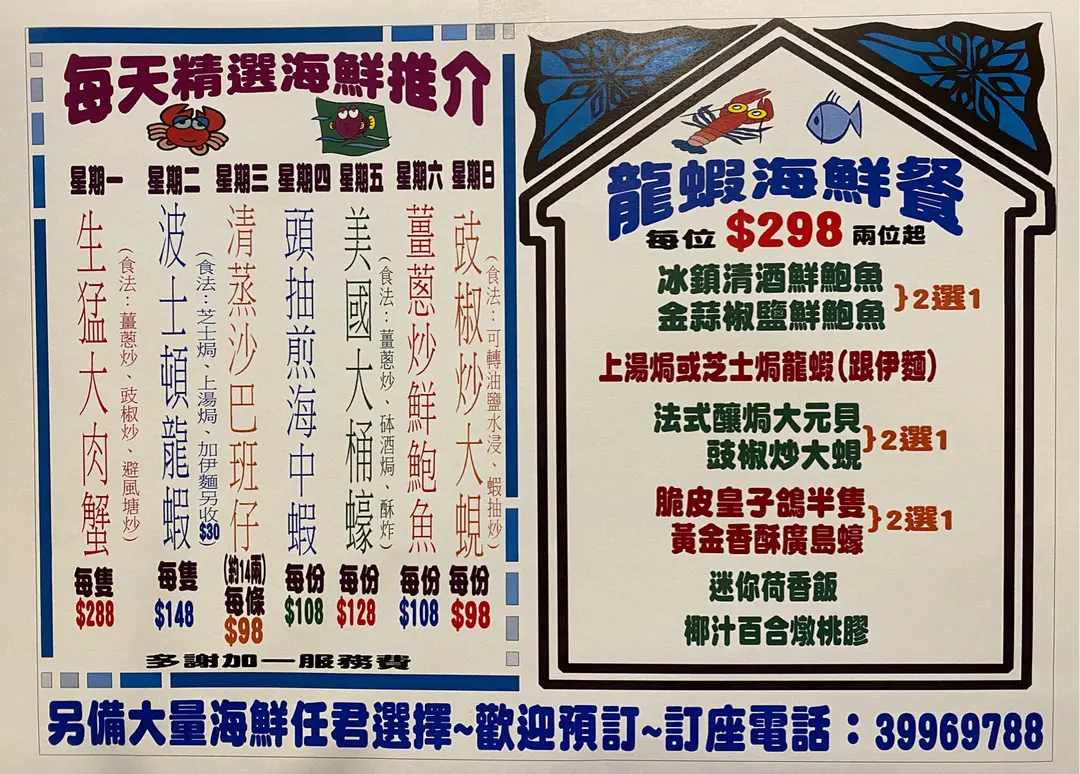 每天精選海鮮推介
星期一
生猛大肉蟹
(食法：薑蔥炒、豉椒炒、避風塘炒)
每隻
$288
星期二
波士頓龍蝦
(食法：芝士焗、上湯焗、加伊麵另收$30)
每隻
$148
星期三
清蒸沙巴班仔
(約14兩)
每條
$98
星期四
頭抽煎海中蝦
每份
$108
星期五
美國大桶蠔
(食法：薑蔥炒、砵酒焗、酥炸)
每份
$128
星期六
薑蔥炒鮮鮑魚
每份
$108
星期日
豉椒炒大蜆
(食法：可轉油鹽水浸、蝦抽炒)
每份
$98
多謝加一服務費
龍蝦海鮮餐
每位 $298 兩位起
冰鎮清酒鮮鮑魚
金蒜椒鹽鮮鮑魚
}2選1
上湯焗或芝士焗龍蝦(跟伊麵)
法式釀焗大元貝
豉椒炒大蜆
}2選1
脆皮皇子鴿半隻
黃金香酥廣島蠔
}2選1
迷你荷香飯
椰汁百合燉桃膠
另備大量海鮮任君選擇~歡迎預訂~訂座電話：39969788